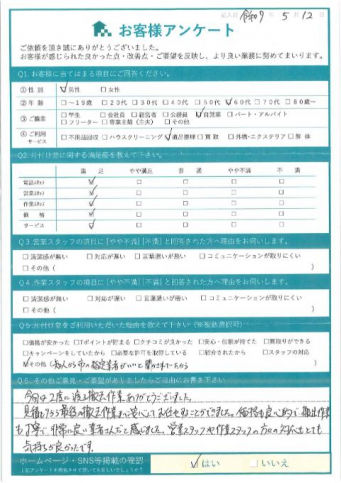 記入日 令和7年5月12日
お客様アンケート
ご依頼を頂き誠にありがとうございました。
お客様が感じられた良かった点・改善点・ご要望を反映し、より良い業務に努めてまいります。
Q1.お客様に当てはまる項目にご回答ください。
①性別 ☑男性 □女性
②年齢 □～19歳 □20代 □30代 □40代 □50代 ☑60代 □70代 □80歳～
③ご職業 □学生 □会社員 □経営者 □公務員 ☑自営業 □パート・アルバイト
□フリーター □専業主婦(主夫) □その他
④ご利用サービス □不用品回収 □ハウスクリーニング ☑遺品整理 □買取 □外構・エクステリア □解体
Q2.片付け堂に関する満足度を教えて下さい。
満足 やや満足 普通 やや不満 不満
電話(ガイ) ☑ □ □ □ □
営業(ガイ) ☑ □ □ □ □
作業(ガイ) ☑ □ □ □ □
価格 ☑ □ □ □ □
サービス ☑ □ □ □ □
Q3.営業スタッフの項目に[やや不満][不満]と回答された方へ理由をお伺いします。
□清潔感が無い □対応が遅い □言葉遣いが悪い □コミュニケーションが取りにくい
□その他( )
Q4.作業スタッフの項目に[やや不満][不満]と回答された方へ理由をお伺いします。
□清潔感が無い □対応が遅い □言葉遣いが悪い □コミュニケーションが取りにくい
□その他( )
Q5.片付け堂をご利用いただいた理由を教えて下さい(複数選択可)
□価格が安かった □Tポイントが貯まる □クチコミが良かった □安心・信頼が持てた □買取りができる
□キャンペーンをしていたから □必要な許可を取得している □紹介されたから □スタッフの対応
☑その他(
Q6.その他ご意見・ご要望がありましたらご自由にお書き下さい
今回は2度に渡る撤去作業ありがとうございました。
も丁寧で、非常に良い業者さんだと感じました。営業スタッフや作業スタッフの方の対応もとても
気持ちが良かったです。
ホームページ・SNS等掲載の確認
☑はい □いいえ